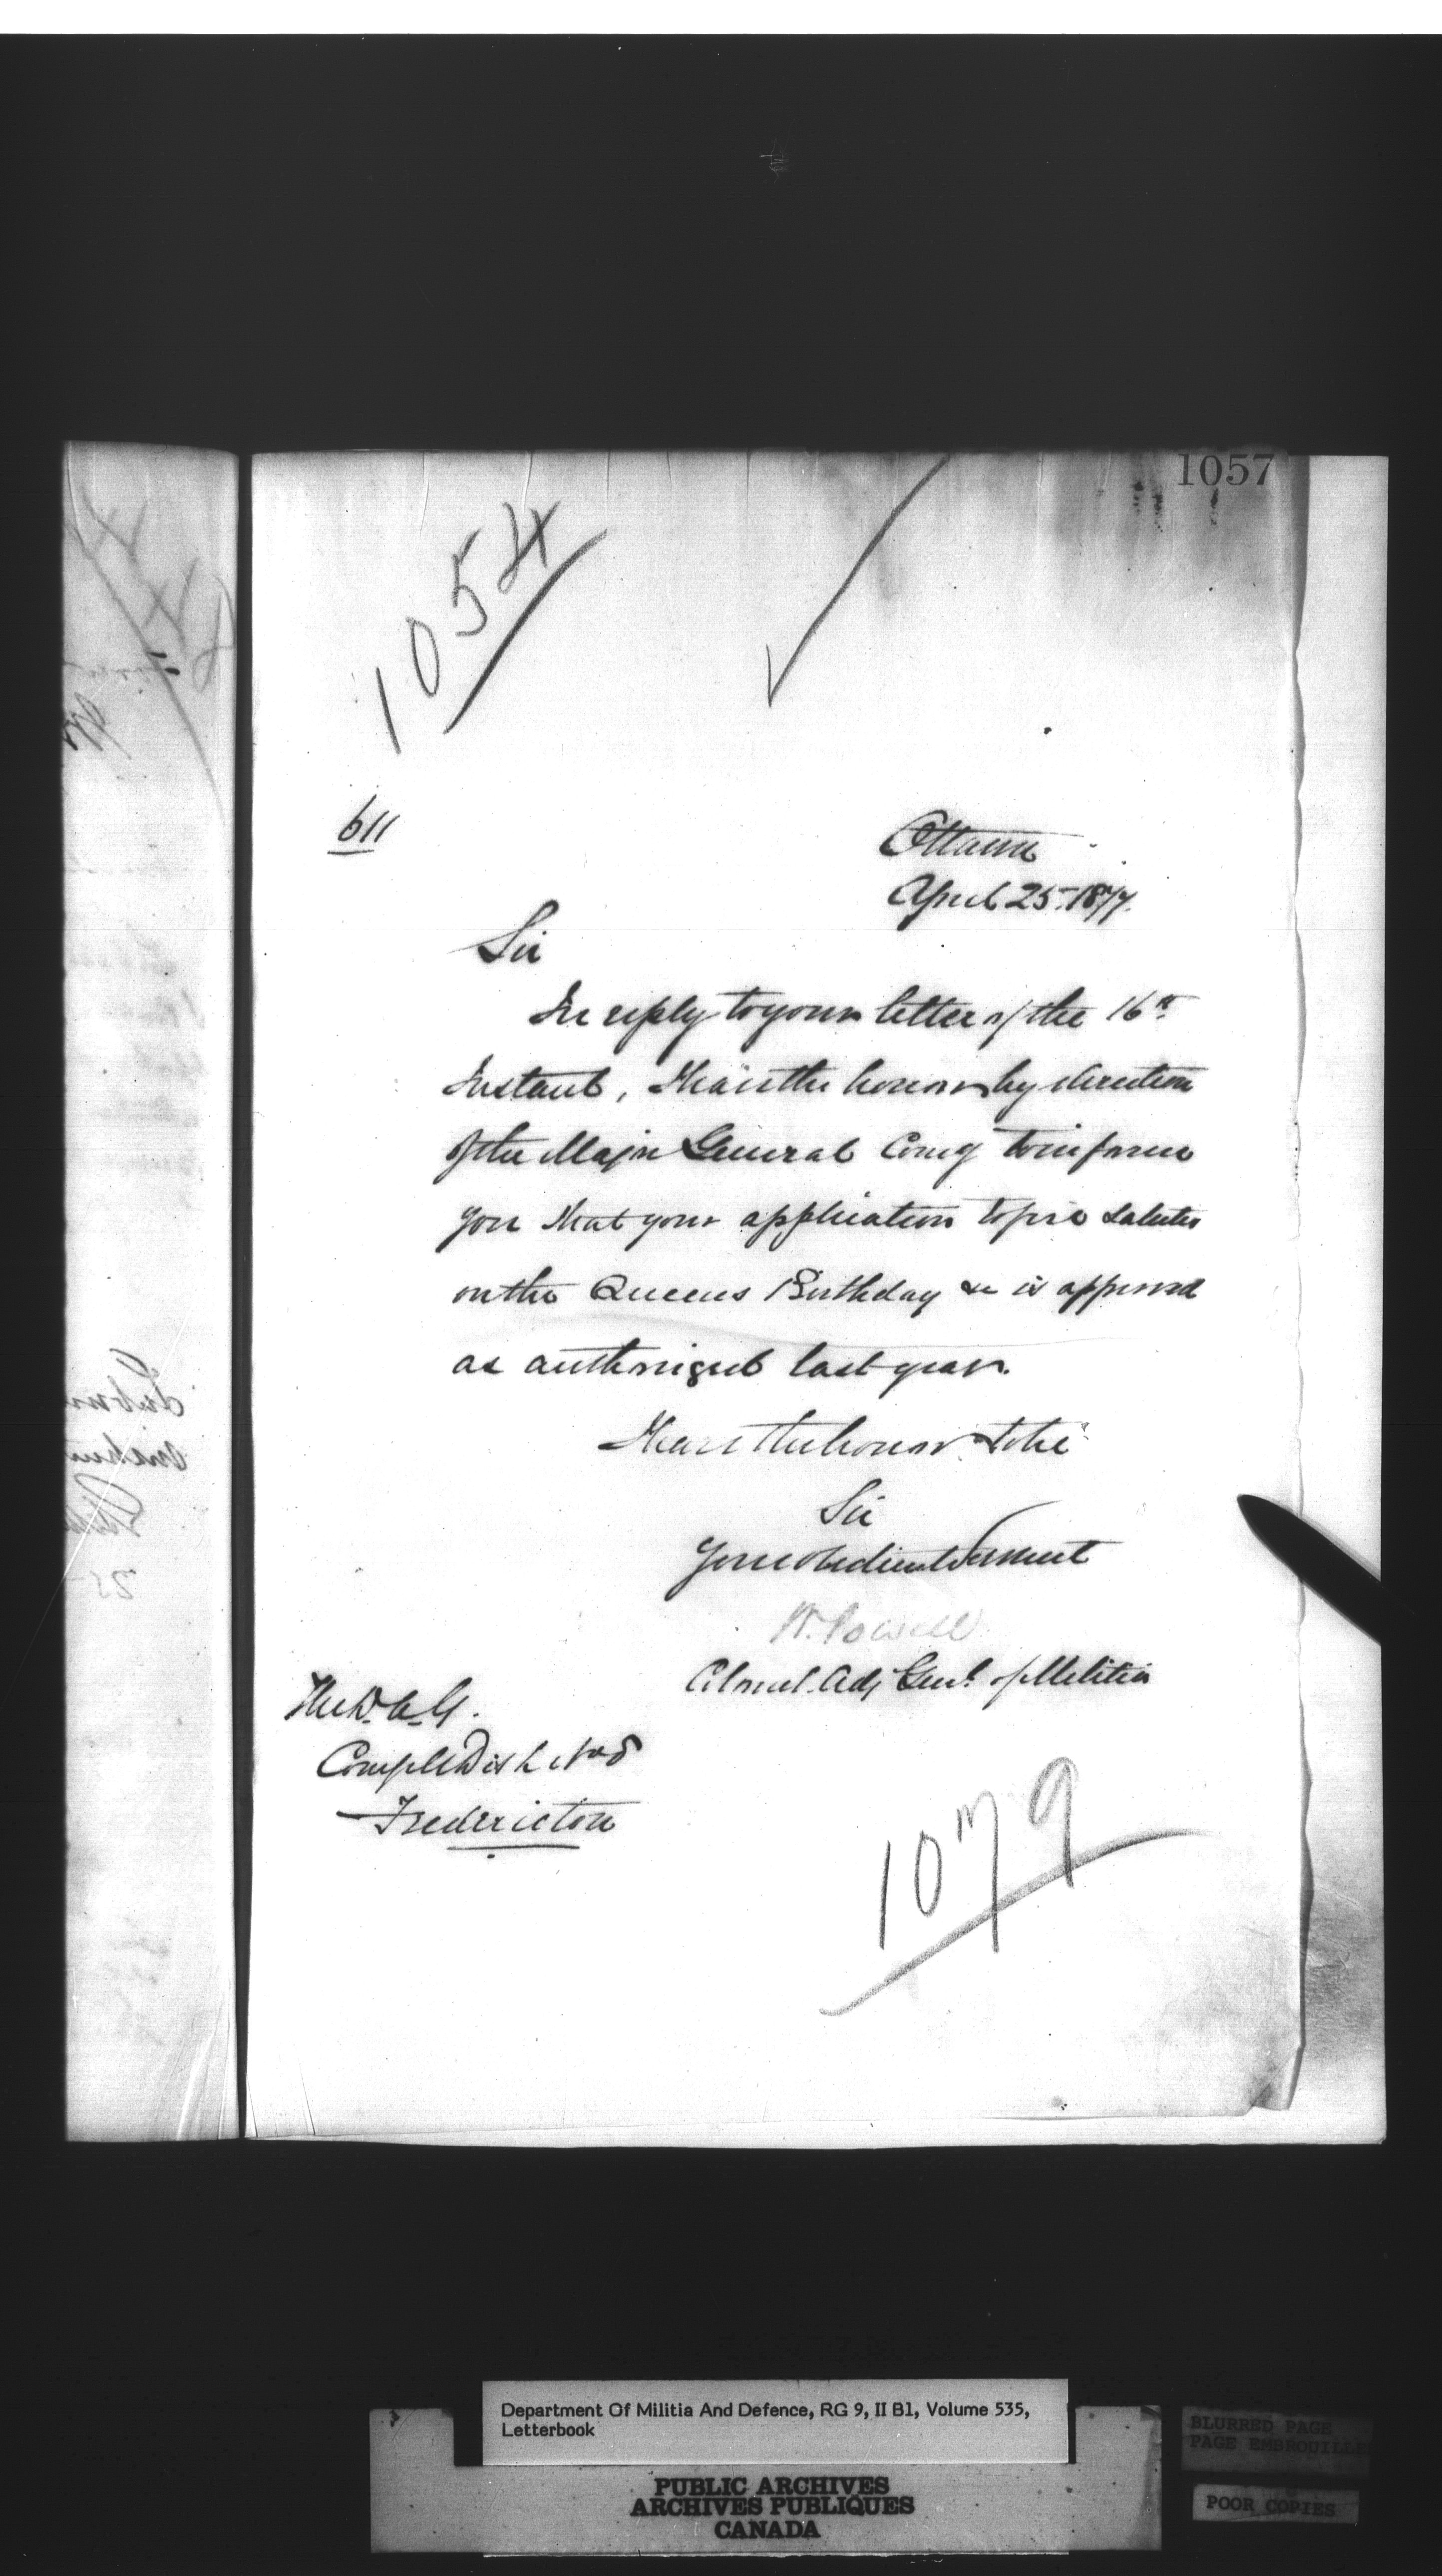 1057
1054
611
Ottawa
April 25. 1877.
Sir
In reply to your letter of the 16th
Instant, I have the honor by direction
of the Major General Comg to inform
you that your application to fire salutes
on the Queens Birthday &c is approved
as authorized last year.
I have the honor to be
Sir
Your obedient Servant
W. Powell
Colonel. Adj Genl. of Militia
The D. A. G.
Comg Dist No 8
Fredericton
1079
Department Of Militia And Defence, RG 9, II B1, Volume 535,
Letterbook
PUBLIC ARCHIVES
ARCHIVES PUBLIQUES
CANADA
BLURRED PAGE
PAGE EMBROUILLE
POOR COPIES